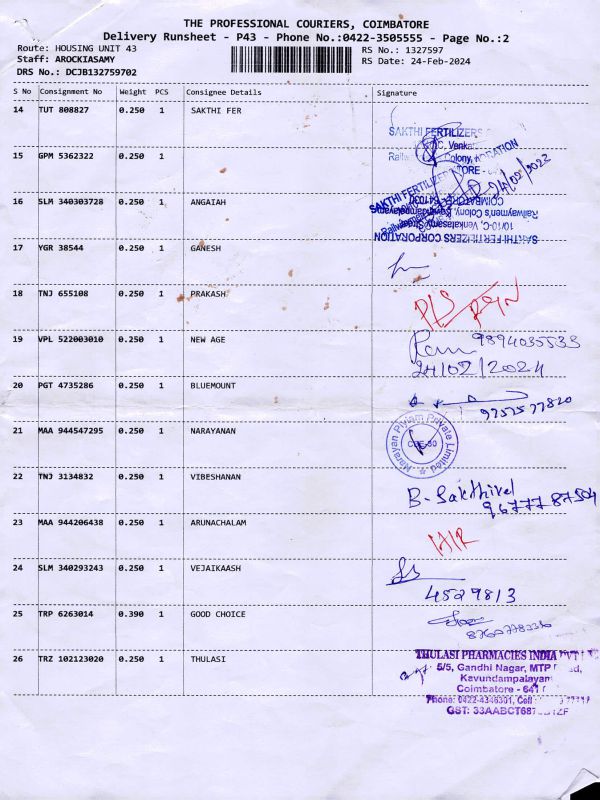 THE PROFESSIONAL COURIERS, COIMBATORE
Delivery Runsheet - P43 - Phone No.:0422-3505555 - Page No.:2
Route: HOUSING UNIT 43 RS No.: 1327597
Staff: AROCKIASAMY RS Date: 24-Feb-2024
DRS No.: DCJB132759702
S No Consignment No Weight PCS Consignee Details Signature
14 TUT 808827 0.250 1 SAKTHI FER
SAKTHI FERTILIZERS
15 GPM 5362322 0.250 1
24/02/2023
16 SLM 340303728 0.250 1 ANGAIAH
10/10-C, Venkatasamy
SAKTHI FERTILIZERS CORPORATION
17 YGR 38544 0.250 1 GANESH
18 TNJ 655108 0.250 1 PRAKASH
19 VPL 522003010 0.250 1 NEW AGE
Ram 9894035533
24/02/2024
20 PGT 4735286 0.250 1 BLUEMOUNT
9752577820
21 MAA 944547295 0.250 1 NARAYANAN
Private Limited
22 TNJ 3134832 0.250 1 VIBESHANAN
B-Sakthivel
96777 87504
23 MAA 944206438 0.250 1 ARUNACHALAM
24 SLM 340293243 0.250 1 VEJAIKAASH
4529813
25 TRP 6263014 0.390 1 GOOD CHOICE
26 TRZ 102123020 0.250 1 THULASI
THULASI PHARMACIES INDIA PVT
5/5, Gandhi Nagar, MTP
Kavundampalayam
Coimbatore - 641
Phone: 0422-4346301, Cell
GST: 33AABCT687